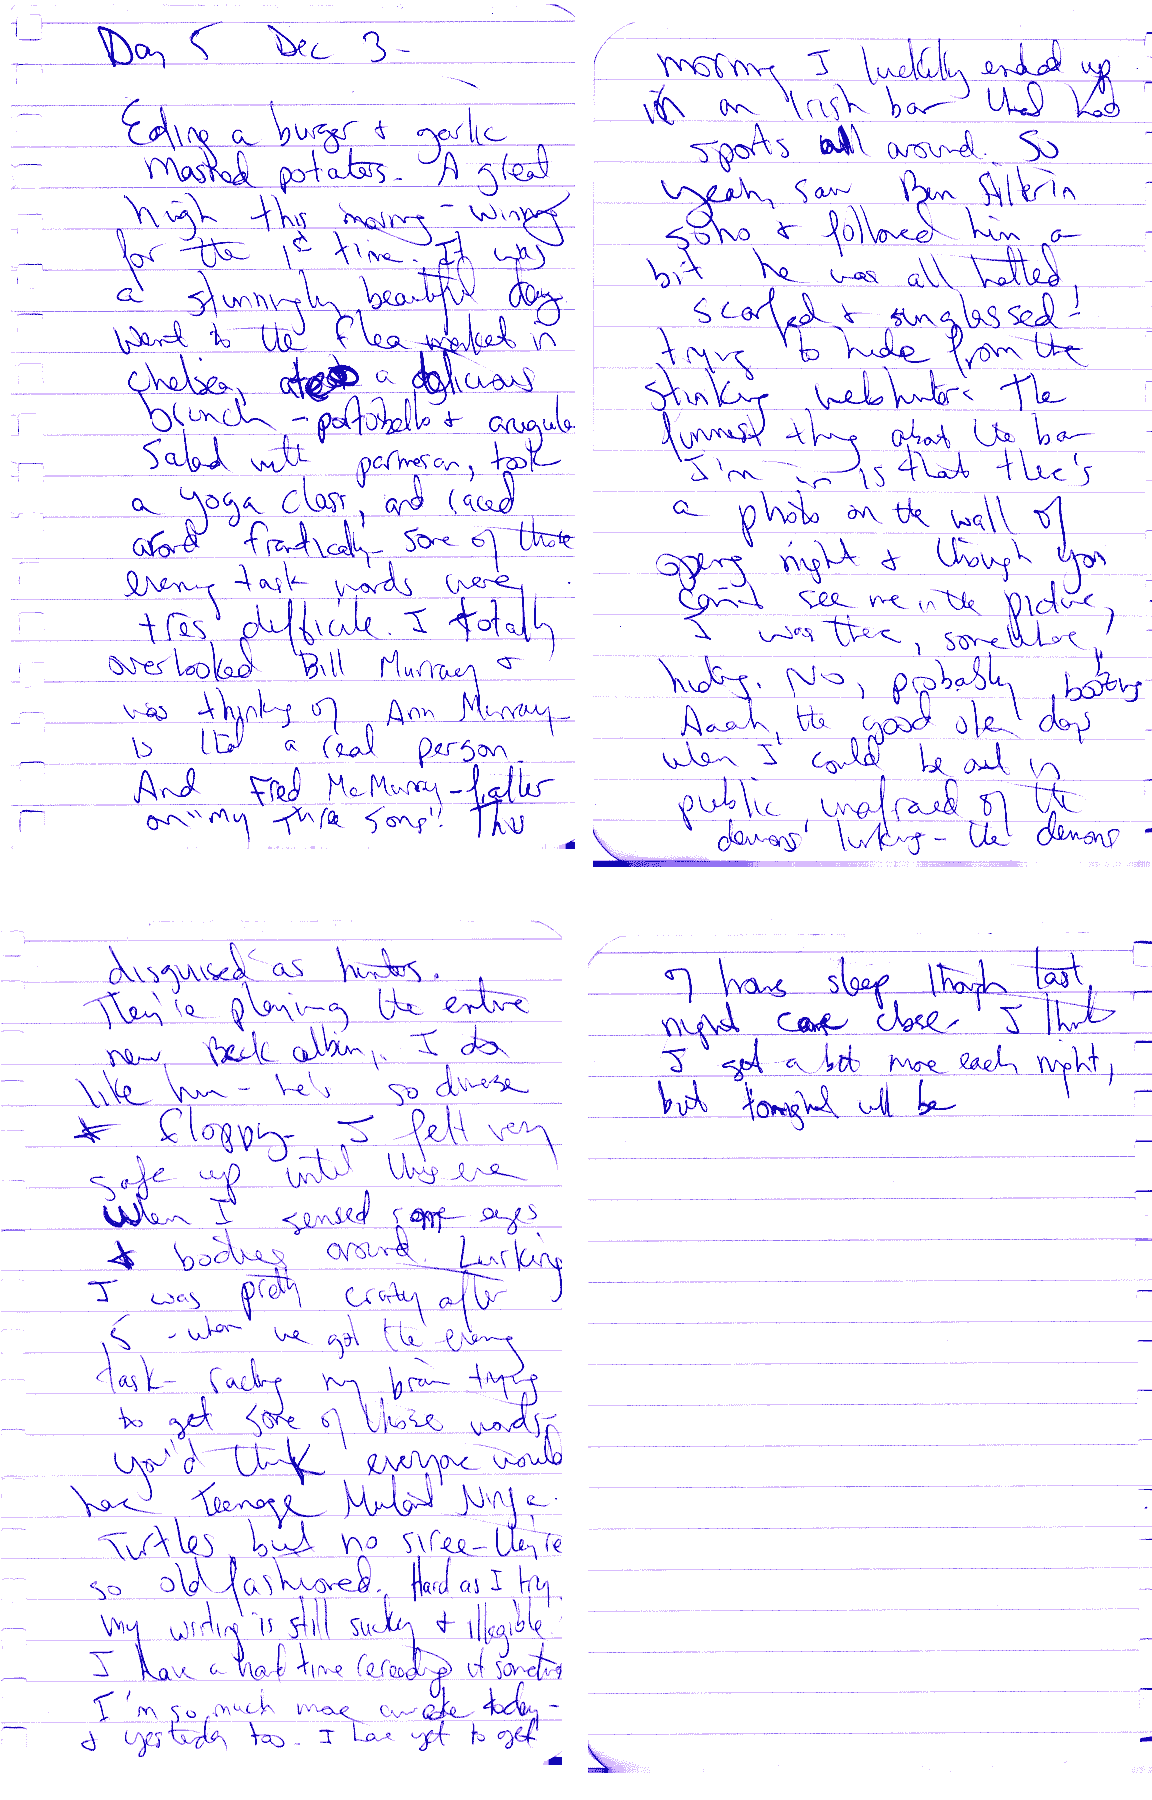 Day 5 Dec 3 -
Eating a burger & garlic
mashed potatoes. A great
high this morning - winning
for the 1st time. It was
a stunningly beautiful day
went to the flea market in
Chelsea, a delicious
brunch - portobello & arugula
salad with parmesan, took
a yoga class, and raced
around frantically - some of those
evening task words were
très difficile. I totally
overlooked Bill Murray &
was thinking of Ann Murray -
is that a real person.
And Fred McMurry - father
on "my three sons"! This
morning I luckily ended up
in an Irish bar that had
sports all around. So
yeah, saw Ben Stiller in
Soho & followed him a
bit he was all hatted,
scarfed & sunglassed -
trying to hide from the
stinking webhunters. The
funniest thing about the bar
I'm in is that there's
a photo on the wall of
opening night & though you
can't see me in the picture,
I was there, somewhere,
hiding. No, probably boozing
Aaah, the good olen days
when I could be out in
public, unafraid of the
demons' lurking - the demons
disguised as hunters.
They're playing the entire
new Beck album. I do
like him - he's so diverse
& floppy. I felt very
safe up until this eve
when I sensed some eyes
& bodies around. Lurking
I was pretty crazy after
5 - when we got the evening
task - racing my brain trying
to get some of those words -
you'd think everyone would
have Teenage Mutant Ninja
Turtles, but no siree - they're
so old fashioned. Hard as I try
my writing is still sucky & illegible.
I have a hard time rereading it sometimes
I'm so much more awake today -
& yesterday too. I have yet to get
7 hours sleep though last
night came close. I think
I get a bit more each night,
but tonight will be